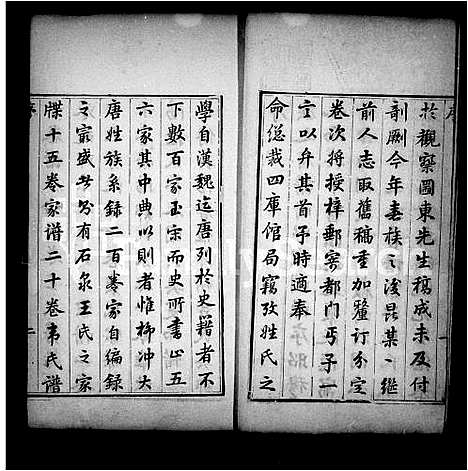 於觀察圖東先生稿成未及付
剞劂今年春族之後昆某繼
前人志取舊稿重加釐訂分定
卷次將授梓郵寄都門丐予一
言以弁其首予時適奉
命總裁四庫館局竊攷姓氏之
學自漢魏迄唐列於史籍者不
下數百家至宋而史所書止五
六家其中典以則者惟柳沖大
唐姓族系錄二百卷家自編錄
之最盛者有石泉王氏之家
牒十五卷家譜二十卷韋氏譜